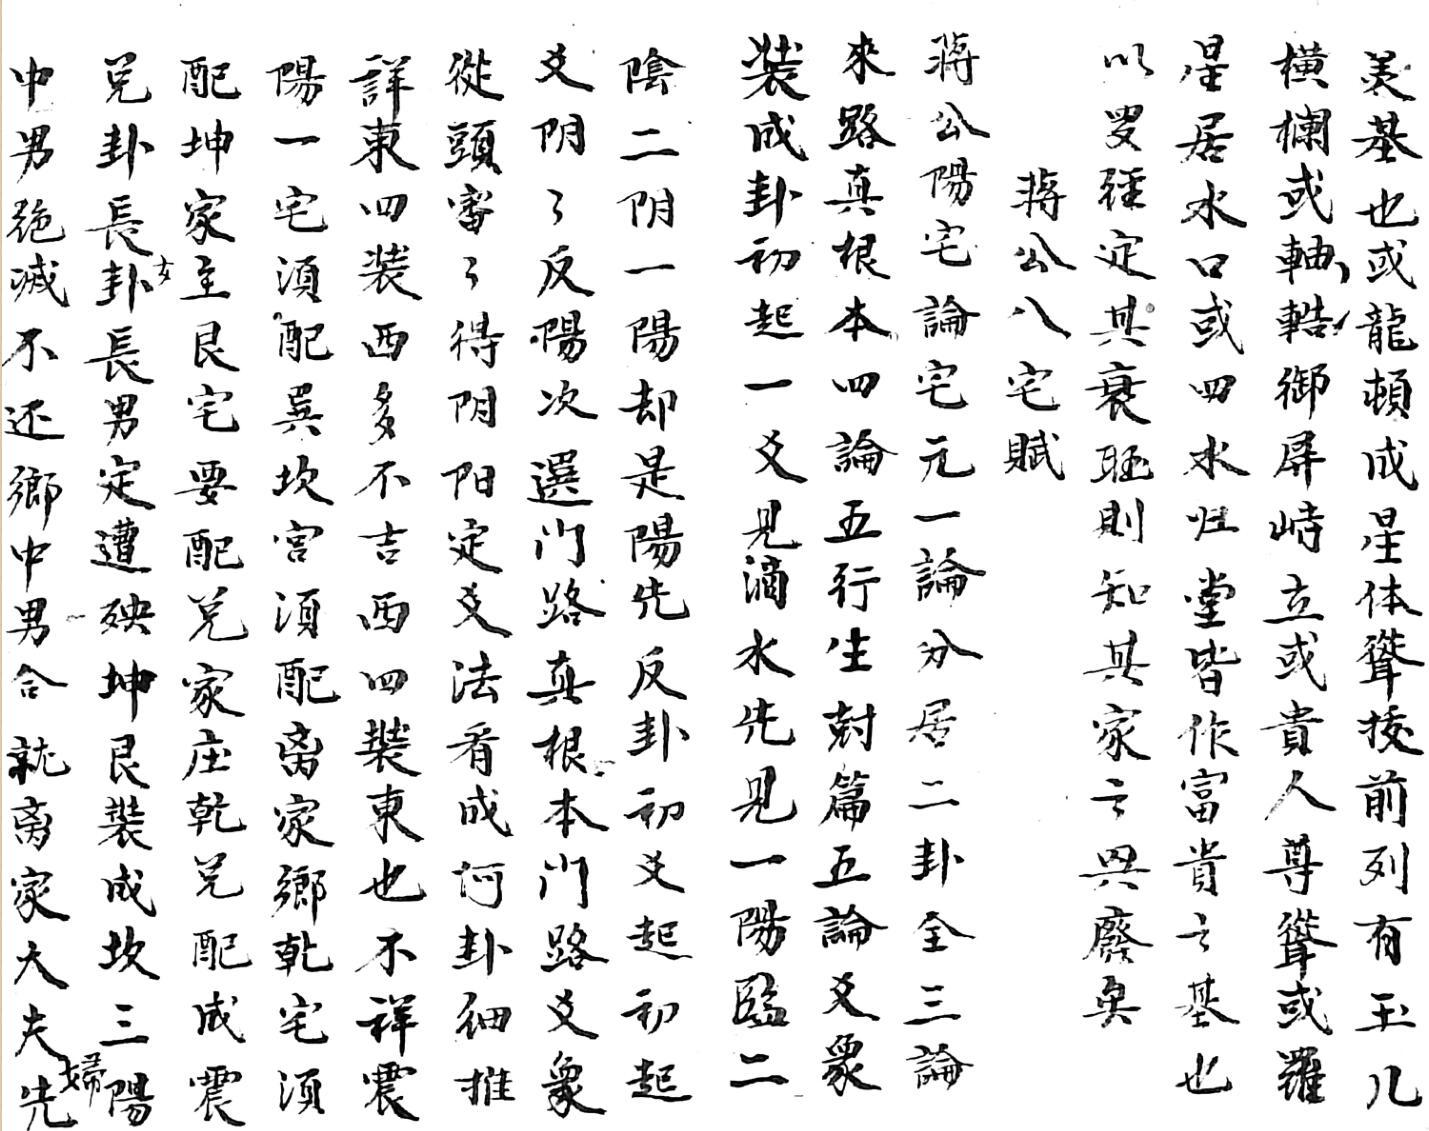 美基也或龍頓成星体聳拔前列有玉几
橫欄或軸轄御屏峙立或貴人尊聳或羅
星居水口或四水归堂皆作富貴之基也
以爻種定其衰旺則知其家之興廢矣
蔣公八宅賦
蔣公陽宅論宅元一論分居二卦全三論
來路真根本四論五行生尅篇五論爻象
装成卦初起一爻見滴水先見一陽臨二
陰二阴一陽却是陽先反卦初爻起初起
爻阴々反陽次選门路真根本门路爻象
從頭審々得阴阳定爻法看成何卦细推
詳東四装西多不吉西四裝東也不祥震
陽一宅須配巽坎宮須配离家鄉乾宅須
配坤家主艮宅要配兌家庄乾兌配成震
兌卦長女卦長男定遭殃坤艮裝成坎三陽
中男绝滅不还鄉中男合就离家大夫先婦